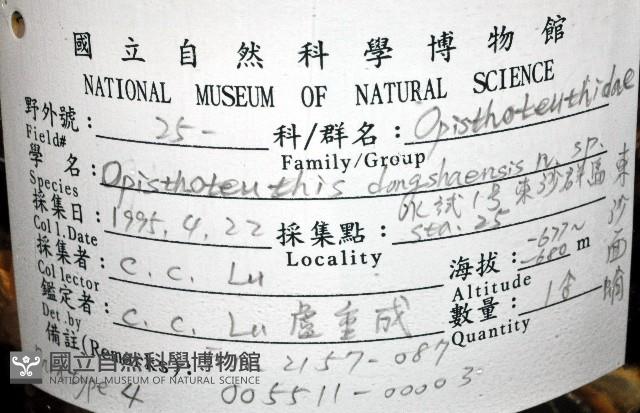 國立自然科學博物館
NATIONAL MUSEUM OF NATURAL SCIENCE
野外號: 25- 科/群名: Opisthoteuthidae
Field# Family/Group
學 名: Opisthoteuthis dongshaensis n. sp.
Species
水試1号 東沙群區 東沙面
採集日: 1995. 4. 22 採集點: sta. 25
Coll.Date Locality
採集者: C. C. Lu 海拔: -677~-680 m
Collector Altitude
鑑定者: C. C. Lu 盧重成 數量: 1
Det.by Quantity
備註(Remarks): 2157-087
4 005511-00003
國立自然科學博物館
NATIONAL MUSEUM OF NATURAL SCIENCE